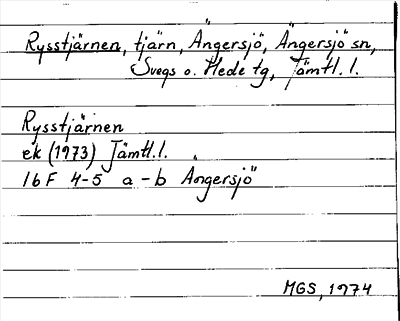 Rysstjärnen, tjärn, Ängersjö, Ängersjö sn,
Svegs o. Hede tg, Jämtl. l.
Rysstjärnen
ek (1973) Jämtl. l.
16 F 4-5 a-b Ängersjö
MGS, 1974